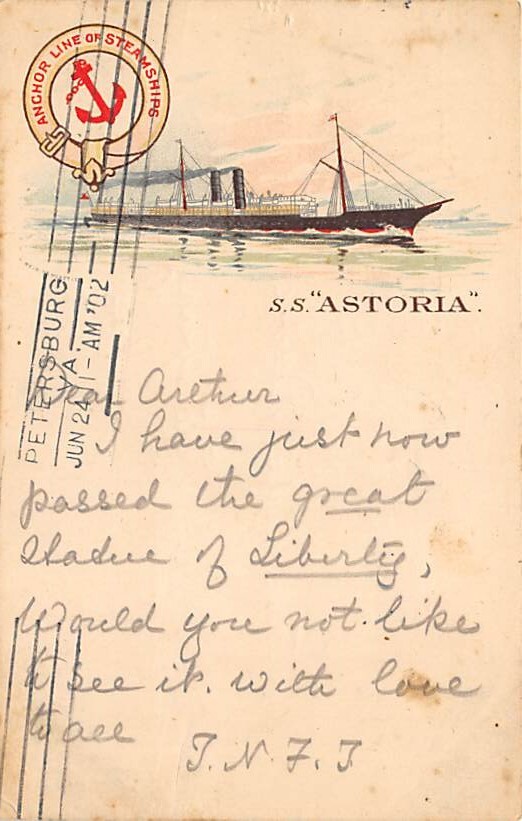 ANCHOR LINE OF STEAMSHIPS
S.S. "ASTORIA".
PETERSBURG
VA.
JUN 24 1-AM '02
Dear Arthur
I have just now
passed the great
Statue of Liberty,
Would you not like
to see it. with love
to all
J. N. F. J